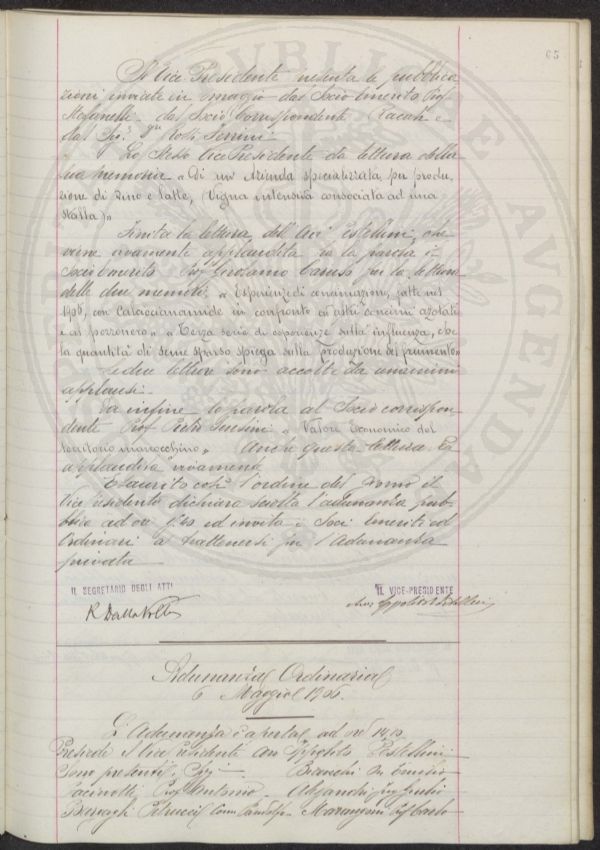 65
Il Vice Presidente presenta le pubblica
zioni inviate in omaggio dal Socio Emerito Prof
Stefanelli dal Socio Corrispondente e
dal
Lo Stesso Vice Presidente da lettura della
sua memoria « Di un' Azienda specializzata per produ-
zione di vino e latte, (Vigna intensiva consociata ad una
stalla)»
Finita la lettura dell' Avv Pestellini, che
viene vivamente applaudita da la parola al
Socio Emerito Prof Girolamo Caruso per la lettura
delle due memorie, « Esperienze di concimazione, fatte nel
1905, con Calciocianamide in confronto ad altri concimi azotati
e al pozzonero » « Terza serie di esperienze sulla influenza, che
la quantità di seme sparso spiega sulla produzione del frumento»
Le due letture sono accolte da unanimi
applausi.
Da infine la parola al Socio corrispon-
dente Prof. Pietro « Valore Economico del
territorio marocchino » Anche questa lettura è
applaudita vivamente
Esaurito così l'ordine del giorno il
Vice Presidente dichiara sciolta l'adunanza pub-
blica ad ore ed invita i Soci Emeriti ed
Ordinari a trattenersi per l'Adunanza
privata
IL SEGRETARIO DEGLI ATTI IL VICE-PRESIDENTE
R Dalla Volta Avv Ippolito Pestellini
Adunanza Ordinaria
6 Maggio 1906.
L'Adunanza è aperta ad ore
Presiede il Vice Presidente Avv Ippolito Pestellini
Sono presenti i Sigg Bianchi Emilio
Pacinotti Prof Antonio - Alessandri Ing Giulio
Petrucci Comm Pandolfo Marangoni Prof Carlo